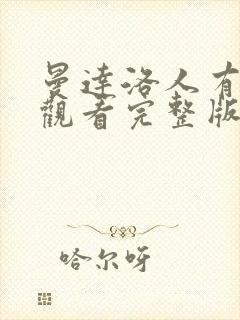 曼達洛人有
觀看完整版
哈尔呀